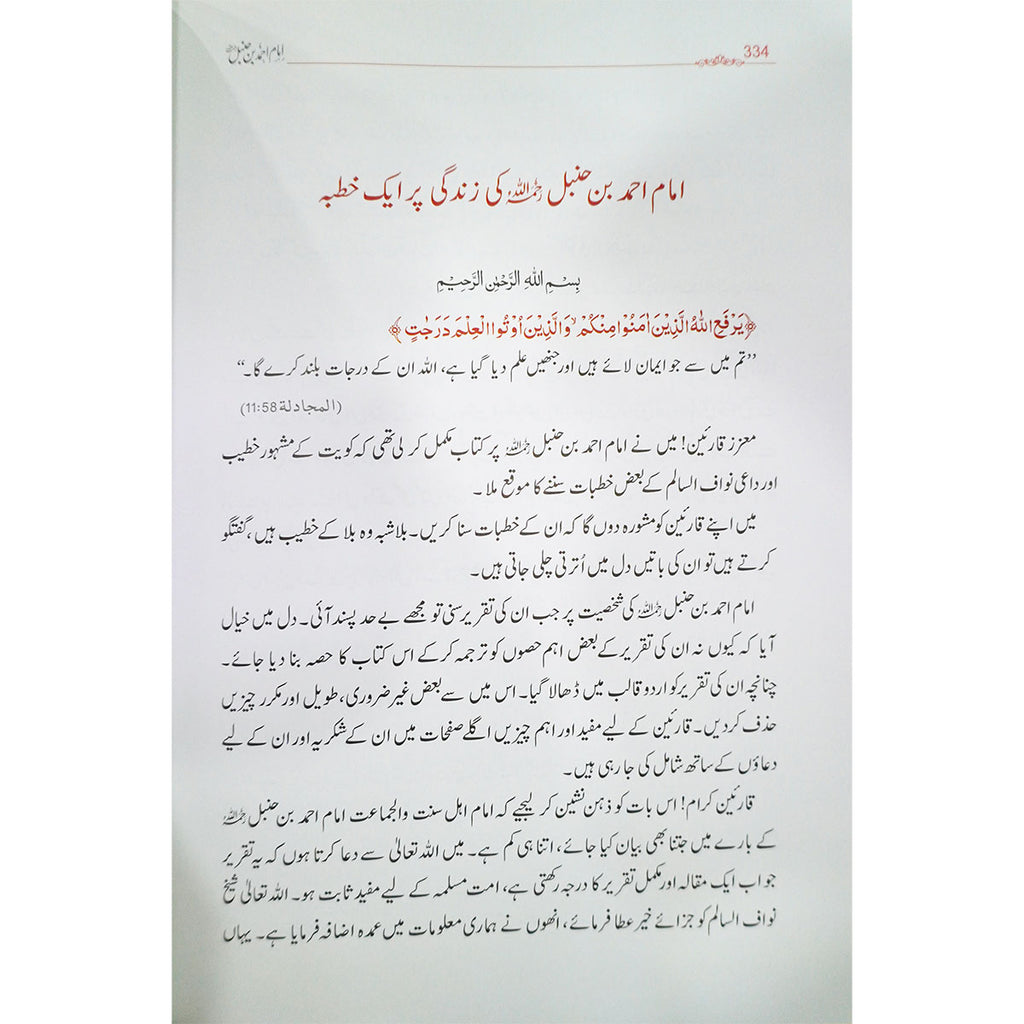 334
امام احمد بن حنبل رحمہ اللہ
امام احمد بن حنبل رحمہ اللہ کی زندگی پر ایک خطبہ
بِسْمِ اللّٰهِ الرَّحْمٰنِ الرَّحِيْمِ
﴿يَرْفَعِ اللّٰهُ الَّذِيْنَ اٰمَنُوْا مِنْكُمْ ۙ وَالَّذِيْنَ اُوْتُوا الْعِلْمَ دَرَجٰتٍ﴾
”تم میں سے جو ایمان لائے ہیں اور جنھیں علم دیا گیا ہے، اللہ ان کے درجات بلند کرے گا۔“
(المجادلة 11:58)
معزز قارئین! میں نے امام احمد بن حنبل رحمہ اللہ پر کتاب مکمل کر لی تھی کہ کویت کے مشہور خطیب
اور داعی نواف السالم کے بعض خطبات سننے کا موقع ملا۔
میں اپنے قارئین کو مشورہ دوں گا کہ ان کے خطبات سنا کریں۔ بلاشبہ وہ بلا کے خطیب ہیں، گفتگو
کرتے ہیں تو ان کی باتیں دل میں اُترتی چلی جاتی ہیں۔
امام احمد بن حنبل رحمہ اللہ کی شخصیت پر جب ان کی تقریر سنی تو مجھے بے حد پسند آئی۔ دل میں خیال
آیا کہ کیوں نہ ان کی تقریر کے بعض اہم حصوں کو ترجمہ کرکے اس کتاب کا حصہ بنا دیا جائے۔
چنانچہ ان کی تقریر کو اردو قالب میں ڈھالا گیا۔ اس میں سے بعض غیر ضروری، طویل اور مکرر چیزیں
حذف کر دیں۔ قارئین کے لیے مفید اور اہم چیزیں اگلے صفحات میں ان کے شکریہ اور ان کے لیے
دعاؤں کے ساتھ شامل کی جا رہی ہیں۔
قارئین کرام! اس بات کو ذہن نشین کر لیجیے کہ امام اہل سنت والجماعت امام احمد بن حنبل رحمہ اللہ
کے بارے میں جتنا بھی بیان کیا جائے، اتنا ہی کم ہے۔ میں اللہ تعالیٰ سے دعا کرتا ہوں کہ یہ تقریر
جو اب ایک مقالہ اور مکمل تقریر کا درجہ رکھتی ہے، امت مسلمہ کے لیے مفید ثابت ہو۔ اللہ تعالیٰ شیخ
نواف السالم کو جزائے خیر عطا فرمائے، انھوں نے ہماری معلومات میں عمدہ اضافہ فرمایا ہے۔ یہاں